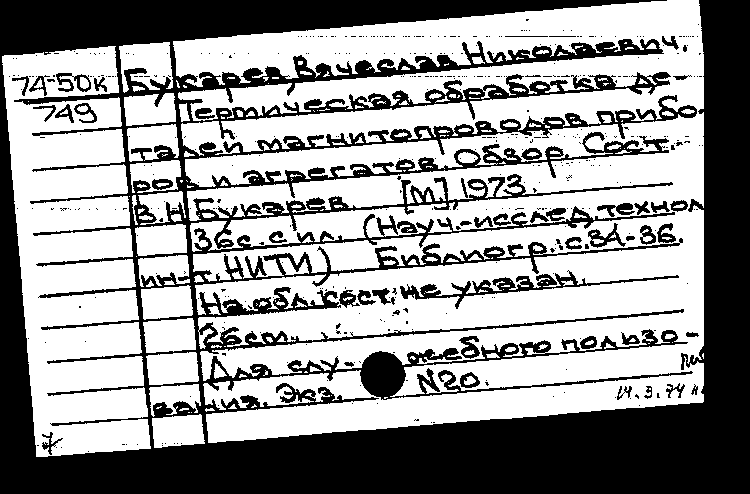 74-50к Букарев, Вячеслав Николаевич.
749 Термическая обработка де-
талей магнитопроводов прибо-
ров и агрегатов. Обзор. Сост.
В.Н. Букарев. [М.], 1973.
36с. с ил. (Науч.-исслед. технол.
ин-т. НИТИ) Библиогр.: с.34-36.
На обл. сост. не указан.
26см.
Для слу- жебного пользо-
вания. Экз. N20.
14.3.74